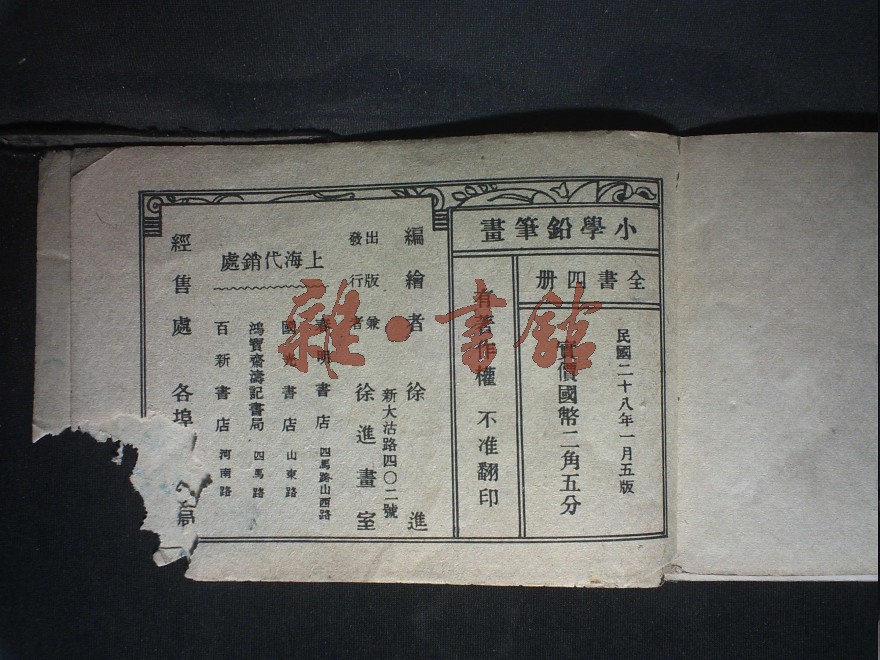 小學鉛筆畫
全書四册
民國二十八年一月五版
實價國幣二角五分
有著作權 不准翻印
編繪者 徐進
新大沽路四〇二號
出版兼
發行者 徐進畫室
上海代銷處
春明書店 四馬路山西路
國光書店 山東路
鴻寶齋濤記書局 四馬路
百新書店 河南路
經售處 各埠
雜·書館